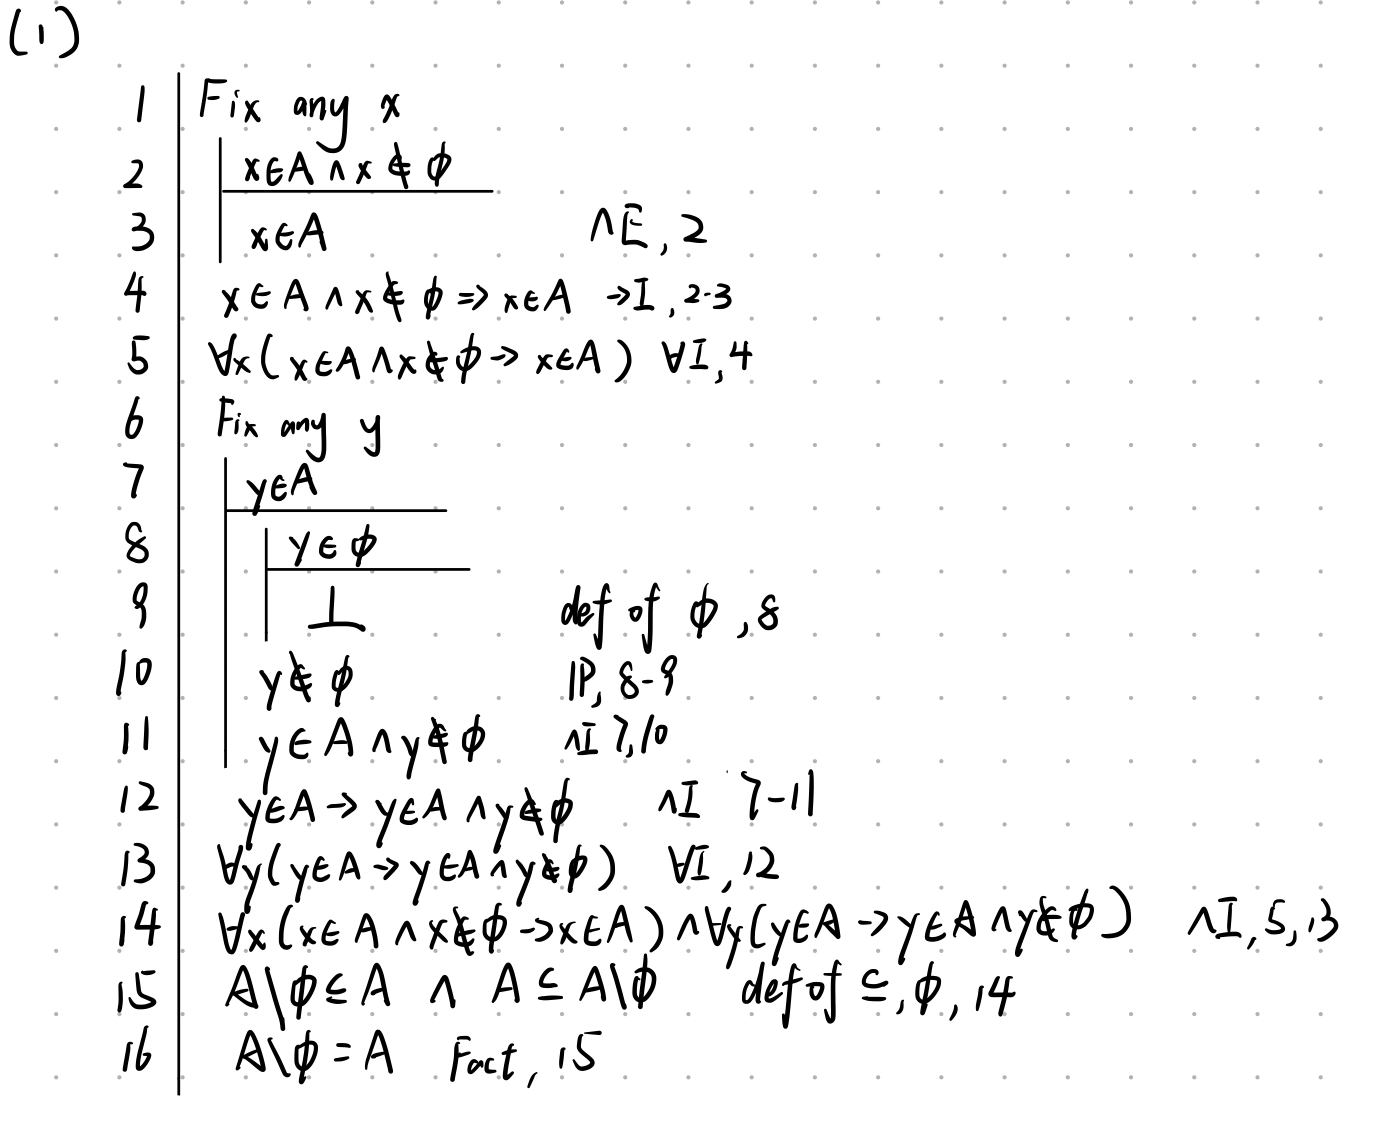 (1)
1 Fix any x
2 x∈A ∧ x ∉ ϕ
3 x∈A ∧E, 2
4 x ∈ A ∧ x ∉ ϕ => x∈A →I, 2-3
5 ∀x(x∈A ∧ x∉ϕ → x∈A) ∀I, 4
6 Fix any y
7 y∈A
8 y ∈ ϕ
9 ⊥ def of ϕ, 8
10 y∉ ϕ IP, 8-9
11 y∈A ∧ y∉ϕ ∧I 7,10
12 y∈A → y∈A ∧ y∉ϕ ∧I 7-11
13 ∀y(y∈A → y∈A ∧ y∉ϕ) ∀I, 12
14 ∀x(x∈A ∧ x∉ϕ → x∈A) ∧ ∀y(y∈A → y∈A ∧ y∉ϕ) ∧I, 5, 13
15 A\ϕ ⊆ A ∧ A ⊆ A\ϕ def of ⊆, ϕ, 14
16 A\ϕ = A Fact, 15